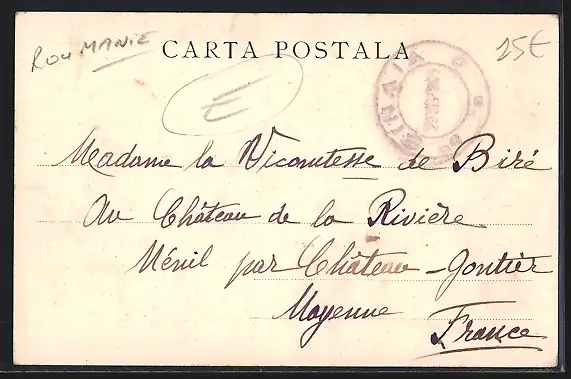 ROUMANIE
CARTA POSTALA
25€
E
SINAIA
Madame la Vicomtesse de Biré
Au Château de la Rivière
Ménil par Château-Gontier
Mayenne
France